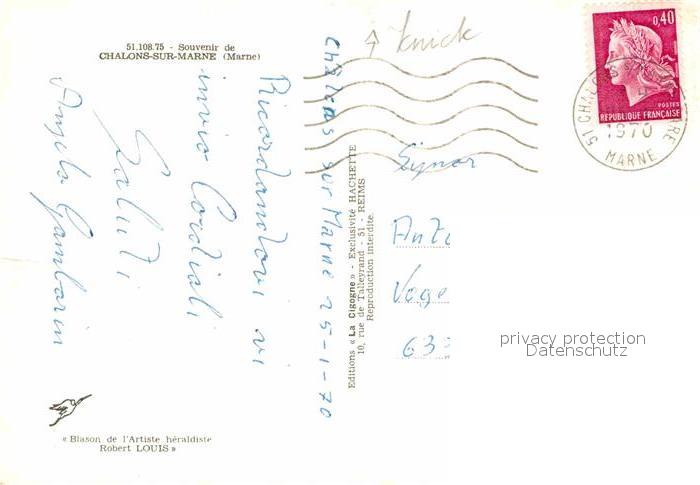 51.108.75 - Souvenir de
CHALONS-SUR-MARNE (Marne)
Châlons sur Marne 25-1-70
Ricordandovi vi
invio Cordiali
Saluti
Angelo Gambarin
knick
0,40
POSTES
REPUBLIQUE FRANÇAISE
51 CHALONS S
MARNE
1970
MARNE
Editions « La Cigogne » - Exclusivité HACHETTE
10, rue de Talleyrand - 51 - REIMS
Reproduction interdite.
Signor
privacy protection
Datenschutz
« Blason de l'Artiste héraldiste
Robert LOUIS »